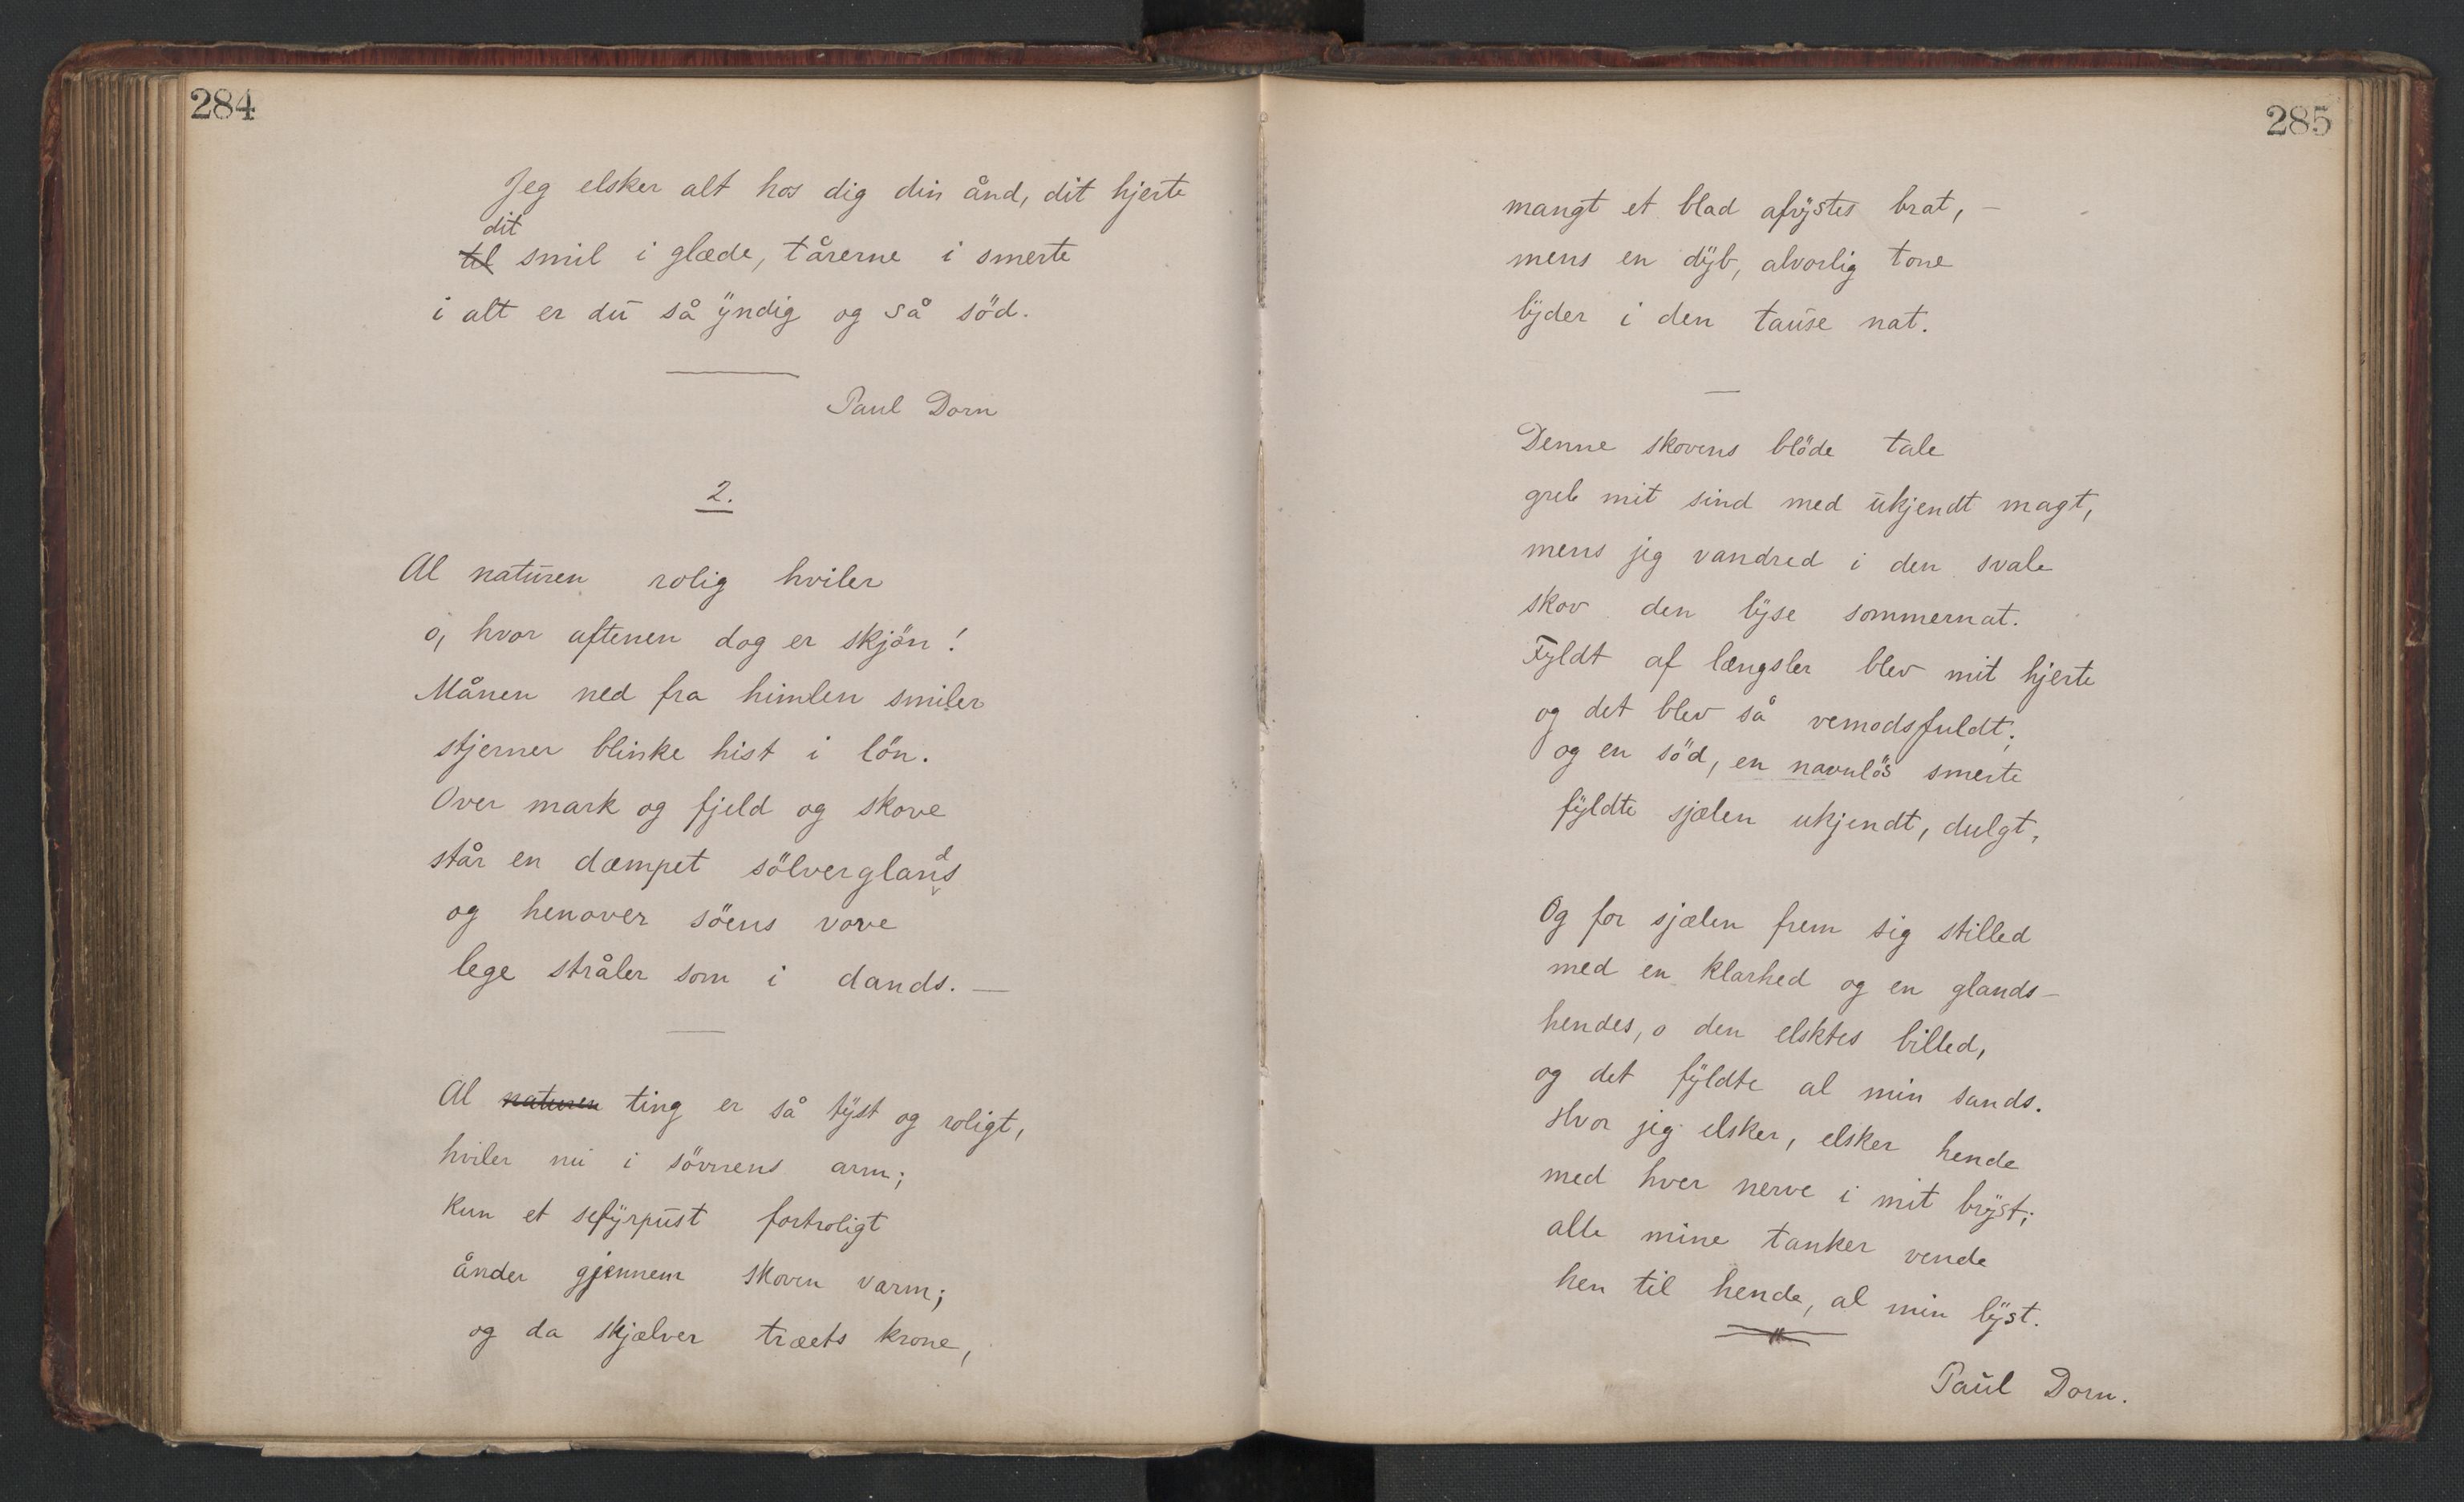 284
Jeg elsker alt hos dig din ånd, dit hjerte
dit
til smil i glæde, tårerne i smerte
i alt er du så ÿndig og så söd.
Paul Dorn
2.
Al naturen rolig hviler
o, hvor aftenen dog er skjön!
Månen ned fra himlen smiler
stjerner blinke hist i lön.
Over mark og fjeld og skove
står en dæmpet sölverglands
og henover söens vove
lege stråler som i dands. —
Al naturen ting er så tÿst og roligt,
hviler nu i sövnens arm;
Kun et sefÿrpust fortroligt
ånder gjennem skoven varm;
og da skjælver træets krone,
285
mangt et blad afrÿstes brat, —
mens en dÿb, alvorlig tone
lÿder i den tause nat.
Denne skovens blöde tale
greb mit sind med ukjendt magt,
mens jeg vandred i den svale
skov den lÿse sommernat.
Fyldt af længsler blev mit hjerte
og det blev så vemodsfuldt;
og en söd, en navnlös smerte
fÿldte sjælen ukjendt, dulgt,
Og for sjælen frem sig stilled
med en klarhed og en glands —
hendes, o den elsktes billed,
og det fÿldte al min sands.
Hvor jeg elsker, elsker hende
med hver nerve i mit brÿst;
alle mine tanker vende
hen til hende, al min lÿst.
Paul Dorn.